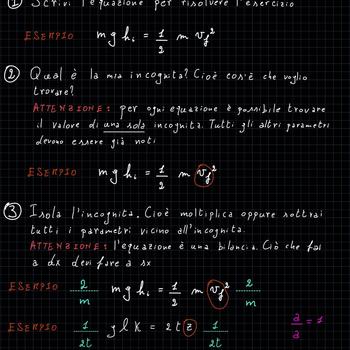 ① Scrivi l'equazione per risolvere l'esercizio
ESEMPIO m g hi = 1/2 m vf²
② Qual è la mia incognita? Cioè cos'è che voglio
trovare?
ATTENZIONE: per ogni equazione è possibile trovare
il valore di una sola incognita. Tutti gli altri parametri
devono essere già noti
ESEMPIO m g hi = 1/2 m vf²
③ Isola l'incognita. Cioè moltiplica oppure sottrai
tutti i parametri vicino all'incognita.
ATTENZIONE: l'equazione è una bilancia. Ciò che fai
a dx devi fare a sx
ESEMPIO 2/m m g hi = 1/2 m vf² 2/m
ESEMPIO 1/2t g l K = 2 t z 1/2t a/a = 1